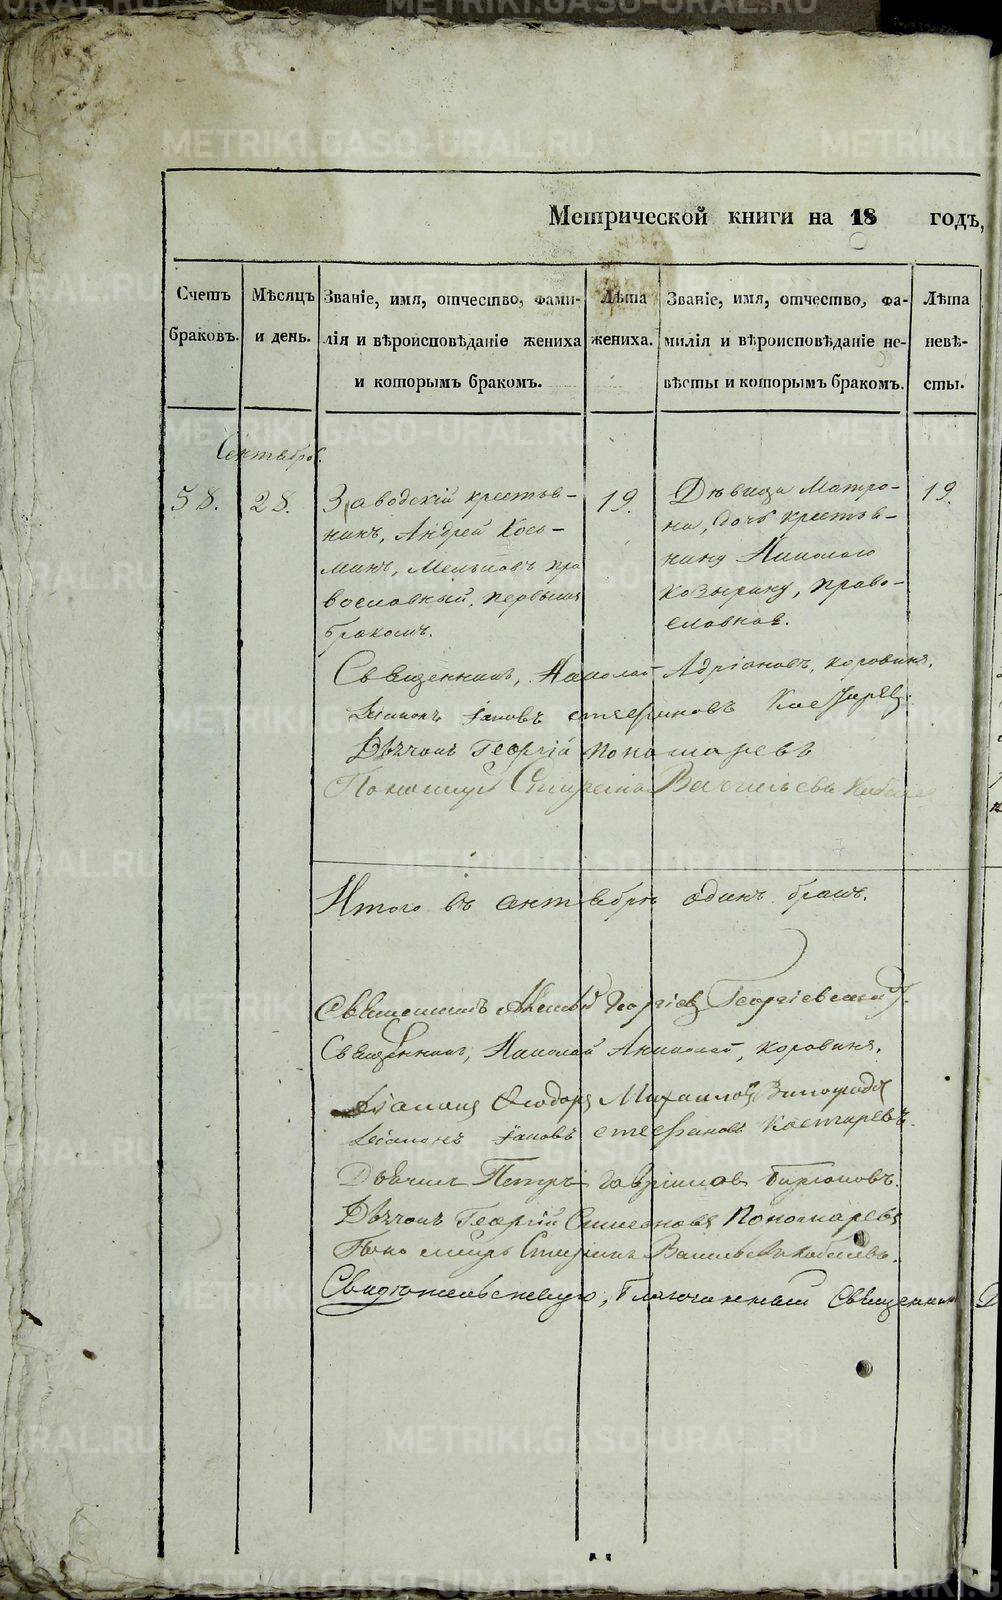 METRIKI.GASO-URAL.RU
Метрической книги на 18 годъ,
Счетъ браковъ.
Мѣсяцъ и день.
Званіе, имя, отчество, фами-
лія и вѣроисповѣданіе жениха
и которымъ бракомъ.
Лѣта жениха.
Званіе, имя, отчество, фа-
милія и вѣроисповѣданіе не-
вѣсты и которымъ бракомъ.
Лѣта невѣ-
сты.
Сентябрь.
58. 28.
Заводскій крестья-
нинъ, Андрей Козь-
минъ, Мельновъ пра
вославный, первымъ
бракомъ.
19.
Дѣвица Матро-
на, дочь крестья-
нину Николаю
Козырину, право-
славная.
19.
Священникъ, Николай Адріановъ, Коровинъ.
Діаконъ Іаковъ Стефановъ
Дьячокъ Георгій Пономаревъ
Пономарь Спиридонъ Васильевъ
Итого въ сентябрѣ одинъ бракъ.
Священникъ Георгіевъ Георгіевскій
Священникъ, Николай Коровинъ.
Діаконъ Ѳеодоръ Михайловъ
Діаконъ Іаковъ Стефановъ Костаревъ.
Дьячекъ Петръ Гавриловъ
Дьячокъ Георгій Симеоновъ Пономаревъ
Пономарь Спиридонъ Васильевъ
Свидѣтельствую, Благочинный Священникъ